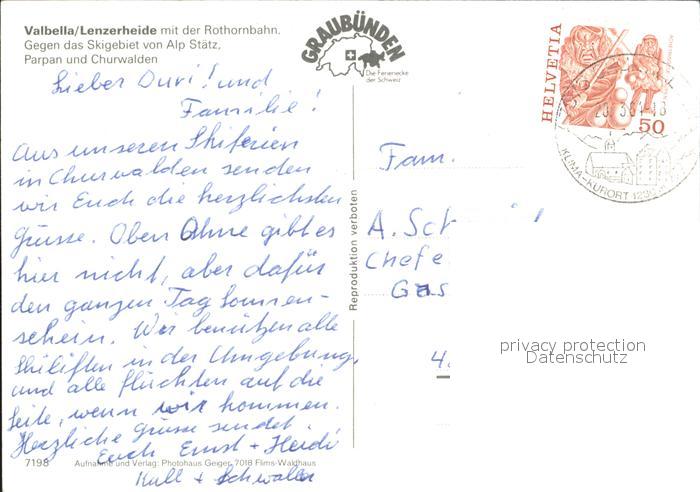 Valbella/Lenzerheide mit der Rothornbahn.
Gegen das Skigebiet von Alp Stätz,
Parpan und Churwalden
GRAUBÜNDEN
Die Ferienecke
der Schweiz
HELVETIA
50
KLIMA-KURORT 1230 m
Lieber Duri! und
Familie!
Aus unseren Skiferien
in Churwalden senden
wir Euch die herzlichsten
Grüsse. Oben Ohne gibt es
hier nicht, aber dafür
den ganzen Tag Sonnen-
schein. Wir benützen alle
Skiliften in der Umgebung,
und alle flüchten auf die
Seite, wenn wir kommen.
Herzliche Grüsse sendet
Euch Ernst + Heidi
Kull + Schwaller
Fam.
A. Sch
Chefe
Gas
4.
Reproduktion verboten
privacy protection
Datenschutz
7198 Aufnahme und Verlag: Photohaus Geiger, 7018 Flims-Waldhaus